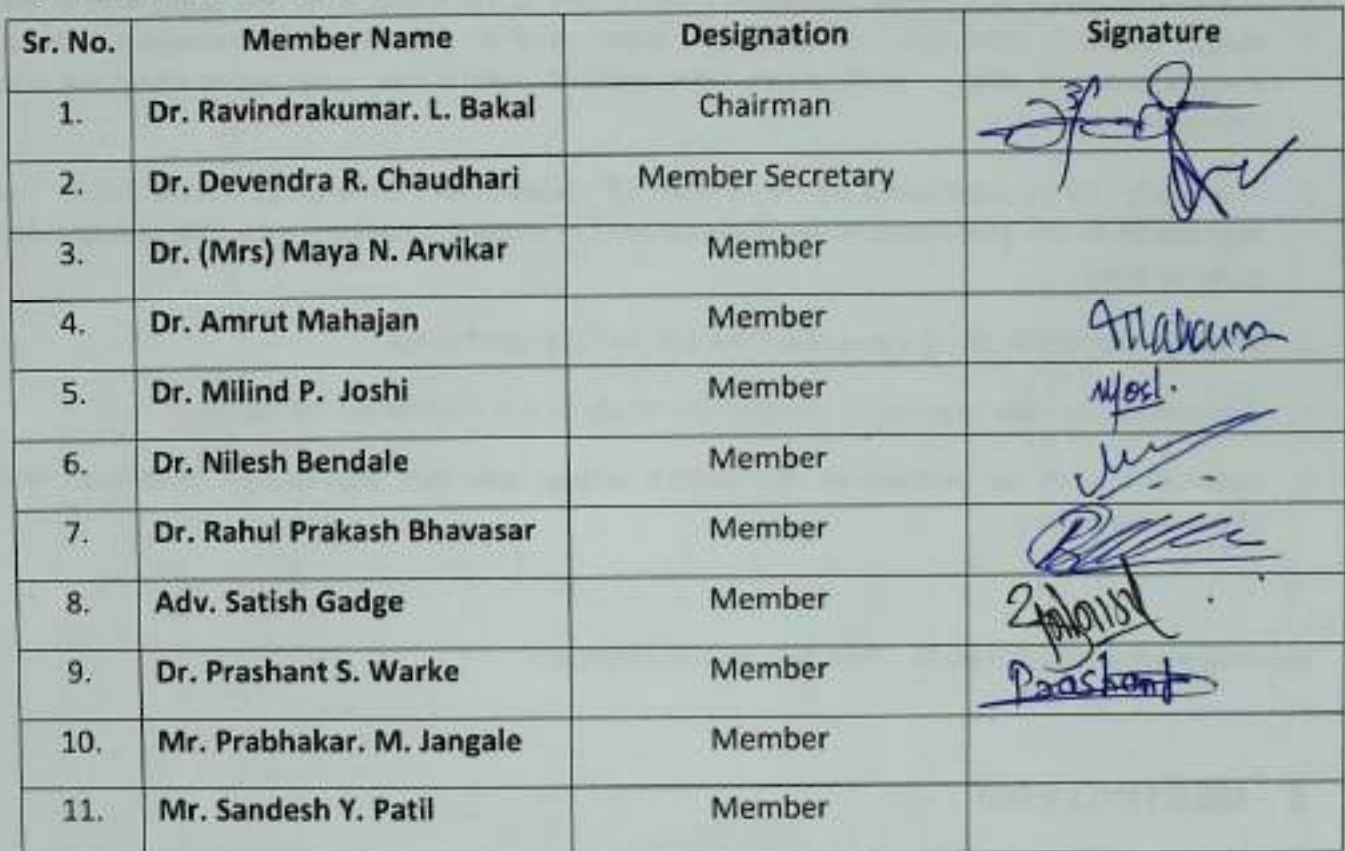 Sr. No. Member Name Designation Signature
1. Dr. Ravindrakumar. L. Bakal Chairman
2. Dr. Devendra R. Chaudhari Member Secretary
3. Dr. (Mrs) Maya N. Arvikar Member
4. Dr. Amrut Mahajan Member
5. Dr. Milind P. Joshi Member
6. Dr. Nilesh Bendale Member
7. Dr. Rahul Prakash Bhavasar Member
8. Adv. Satish Gadge Member
9. Dr. Prashant S. Warke Member Prashant
10. Mr. Prabhakar. M. Jangale Member
11. Mr. Sandesh Y. Patil Member